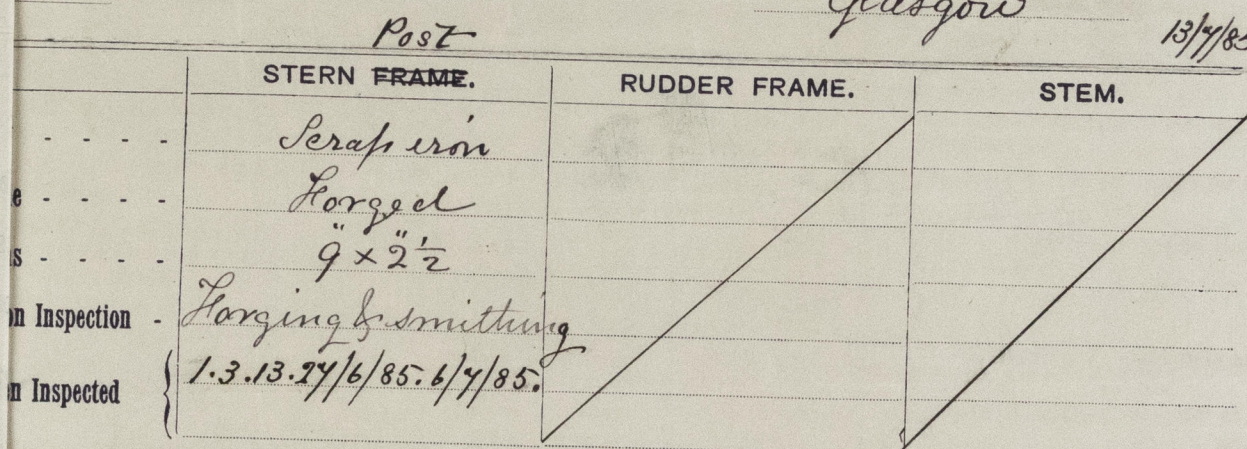 Glasgow
13/7/85
Post
STERN FRAME.
RUDDER FRAME.
STEM.
Scrap iron
e
Forged
s
9" x 2 1/2"
on Inspection
Forging & smithing
on Inspected
1.3.13.27/6/85. 6/7/85.